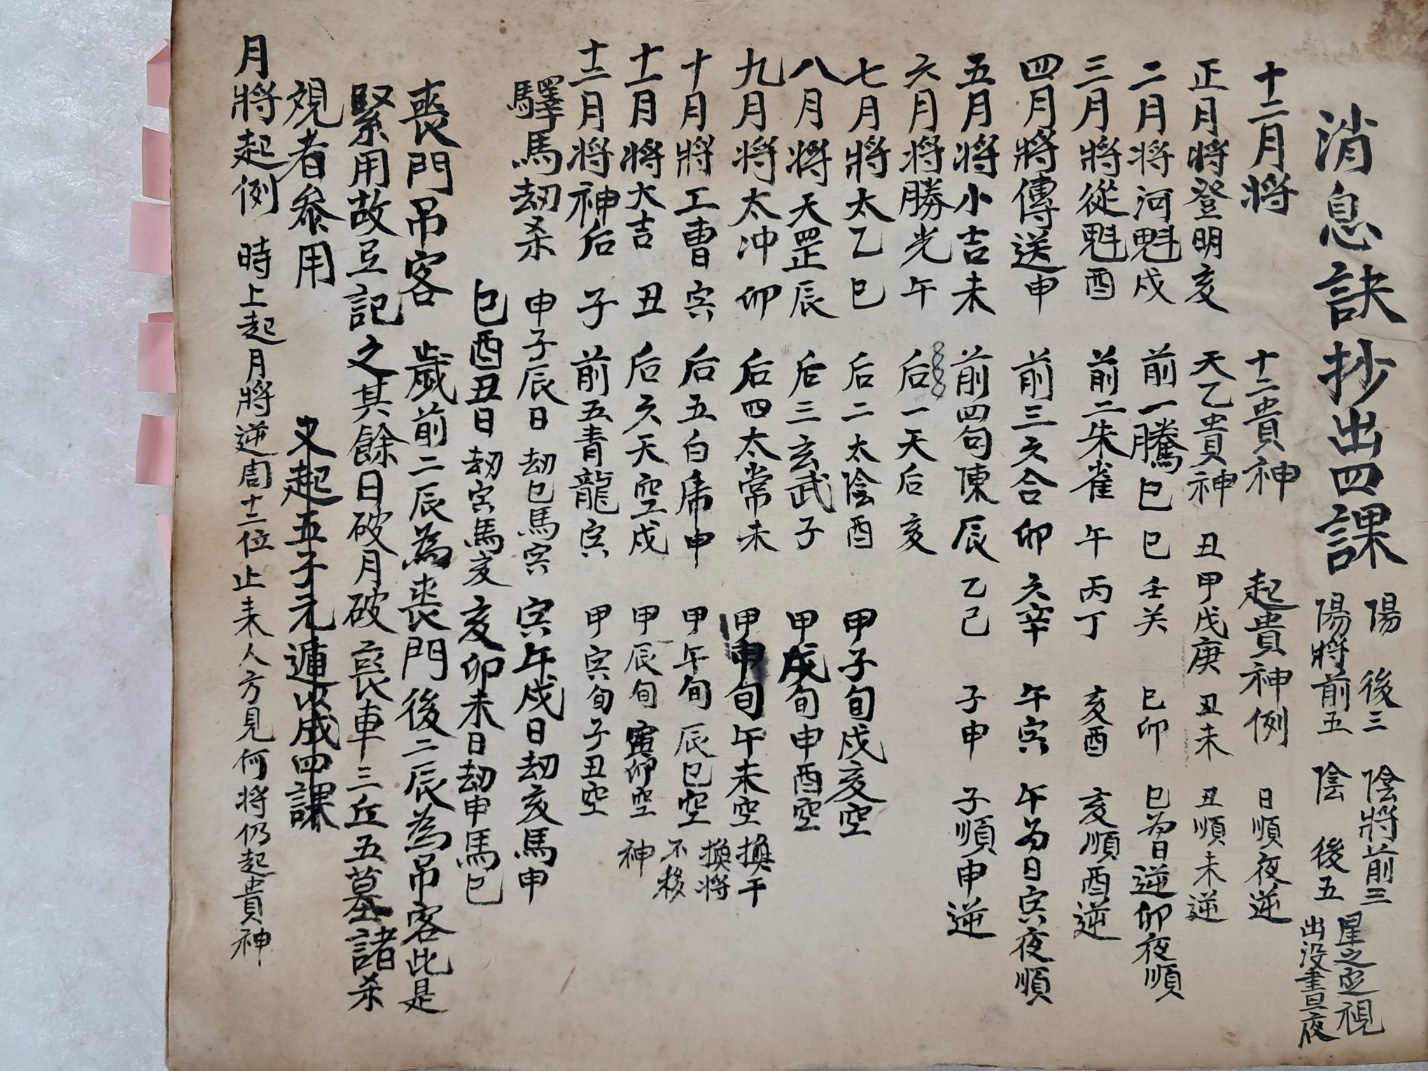 消息訣抄出四課 陽後三 陰將前三
陽將前五 陰後五
星之定視
出没晝旦夜
十二月將 十二貴神 起貴神例 日順夜逆
正月將登明亥 天乙貴神丑 甲戊庚 丑未 丑順未逆
二月將河魁戌 前一騰巳巳 壬癸 巳卯 巳為日逆卯夜順
三月將從魁酉 前二朱雀午 丙丁 亥酉 亥順酉逆
四月將傳送申 前三六合卯 六辛 午寅 午為日寅夜順
五月將小吉未 前四勾陳辰 乙己 子申 子順申逆
六月將勝光午 后一天后亥
七月將太乙巳 后二太陰酉 甲子旬戌亥空
八月將天罡辰 后三玄武子 甲戌旬申酉空
九月將太冲卯 后四太常未 甲申旬午未空 換干
十月將工曹寅 后五白虎申 甲午旬辰巳空 換將
不移
十一月將大吉丑 后六天空戌 甲辰旬寅卯空 神
十二月將神后子 前五青龍寅 甲寅旬子丑空
驛馬刼杀 申子辰日刼巳馬寅 寅午戌日刼亥馬申
巳酉丑日刼寅馬亥 亥卯未日刼申馬巳
喪門吊客 歲前二辰為喪門後二辰為吊客此是
緊用故豆記之其餘日破月破喪車三丘五墓諸杀
視者叅用 又起五子元遁以成四課
月將起例 時上起月將逆周十二位止未人方見何將仍起貴神